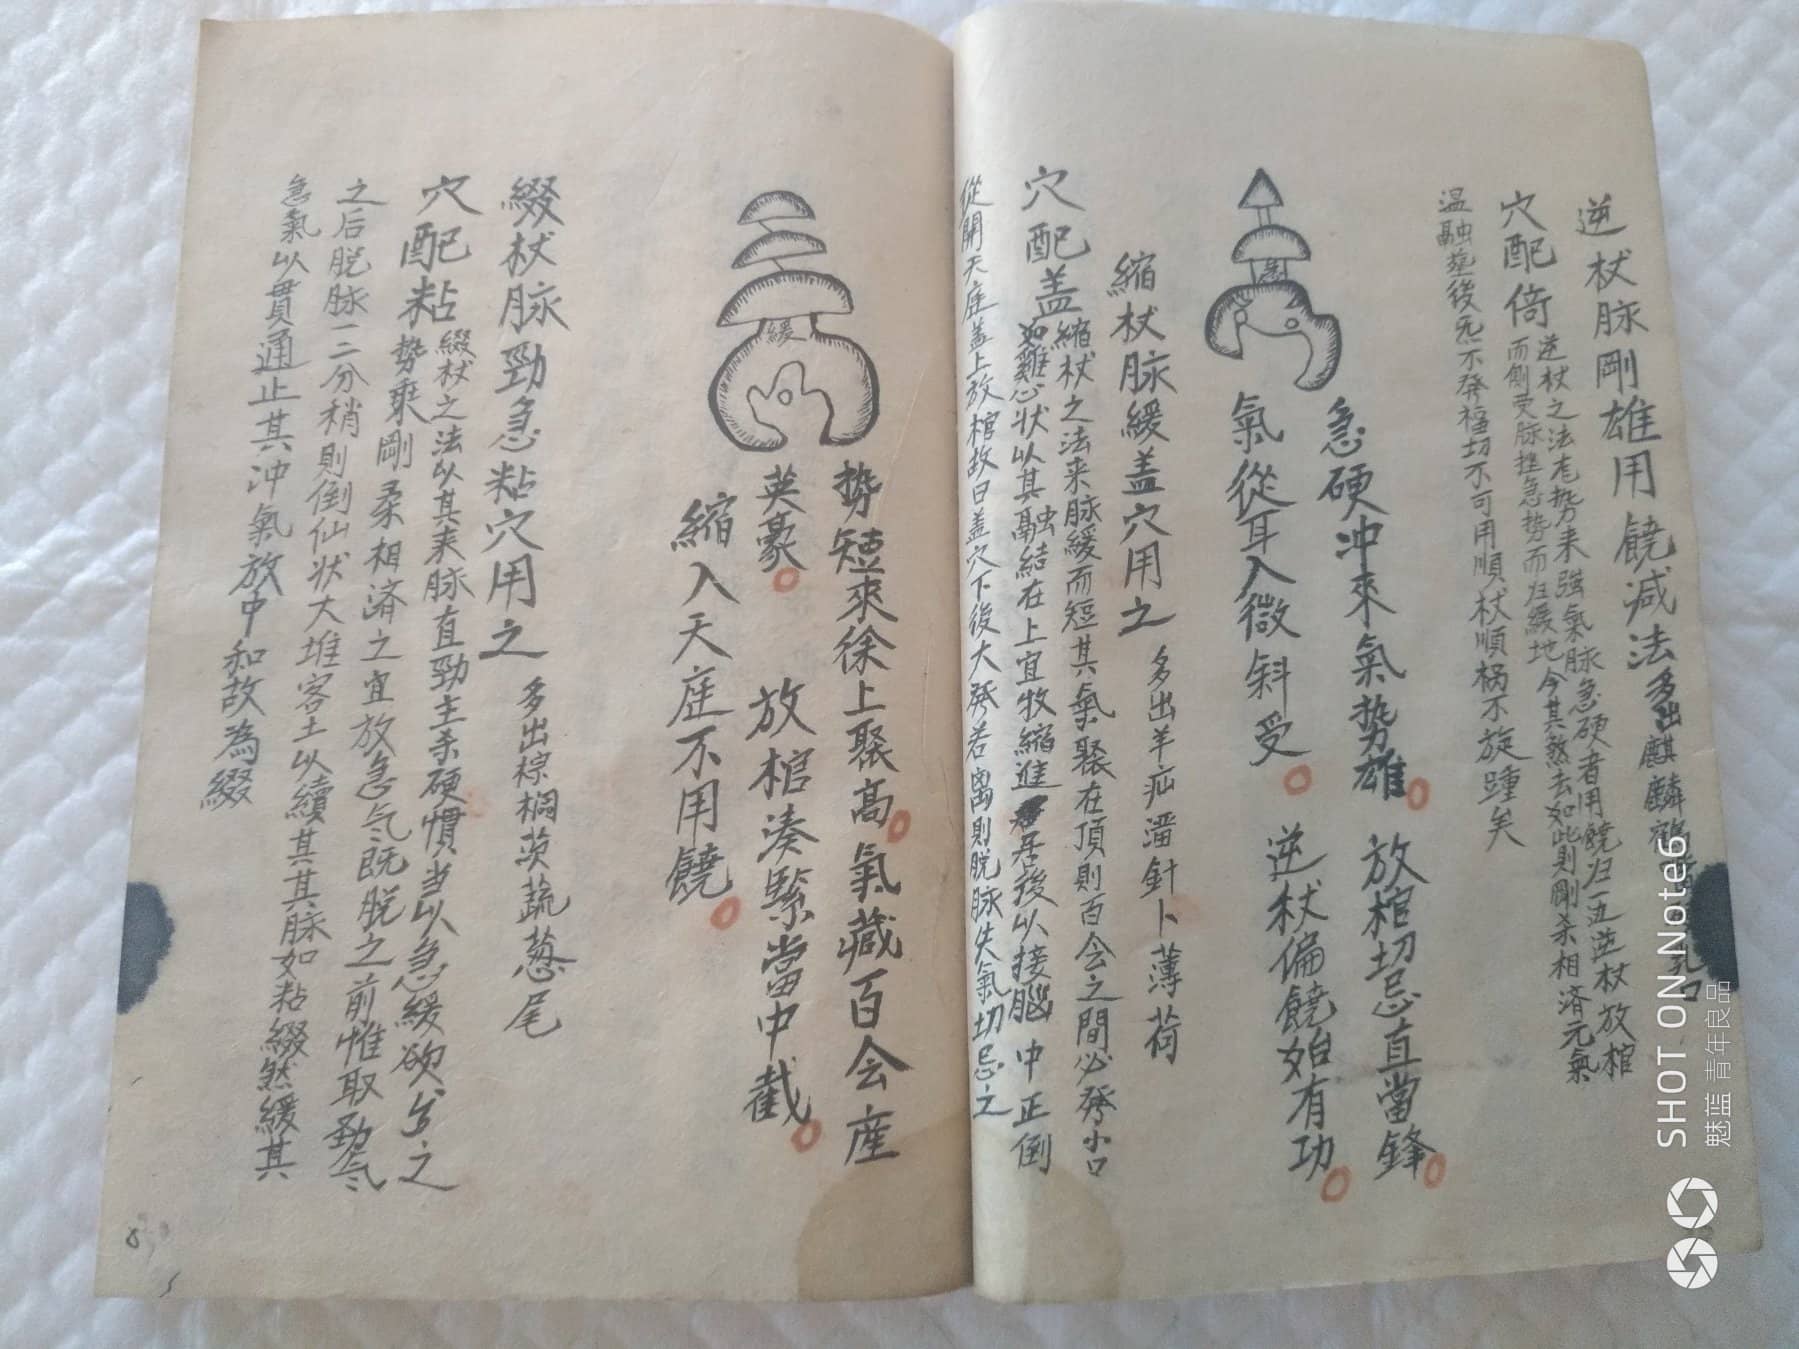 逆杖脉剛雄用饒減法多出麒麟
穴配倚
逆杖之法尨势来強氣脉急硬者用饒归一五逆杖放棺
而側受脉挫急势而归緩地令其煞去如此則剛杀相済元氣
温融塟後旡不発福切不可用順杖順祸不旋踵矣
急
急硬冲來氣势雄
放棺切忌直當鋒
氣從耳入微斜受
逆杖偏饒始有功
縮杖脉緩盖穴用之
多出羊疝 針卜薄荷
穴配盖
縮杖之法来脉緩而短其氣聚在頂則百会之間必発小口
如雞心状以其融結在上宜牧縮進 后後以接腦中正倒
從開天庭盖上放棺故曰盖穴下後大発若离則脱脉失氣切忌之
緩
势短來徐上聚高
氣藏百会産英豪
放棺湊緊當中截
縮入天庭不用饒
綴杖脉勁急粘穴用之
多出棕榈茨蔬葱尾
穴配粘
綴杖之法以其来脉直勁主杀硬慣当以急緩欲兮之
势乘剛柔相済之宜放急气既脱之前惟取勁气
之后脱脉二三分稍則倒仙状大堆客土以續其其脉如粘綴然緩其
急氣以貫通止其冲氣放中和故為綴
SHOT ON Note6
魅蓝 青年良品